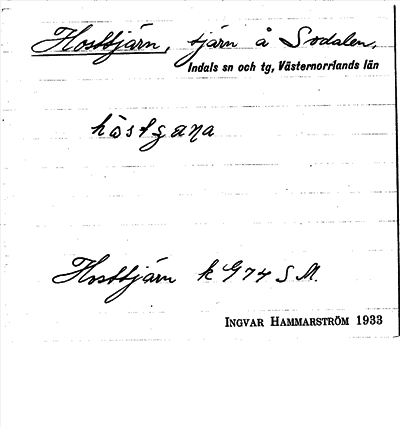 Hosttjärn, tjärn å Sodalen,
Indals sn och tg, Västernorrlands län
Hosttjärn k G 74 S M.
INGVAR HAMMARSTRÖM 1933